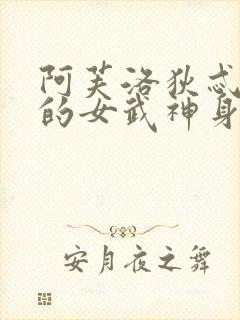 阿芙洛狄忒
的女武神身
安月夜之舞